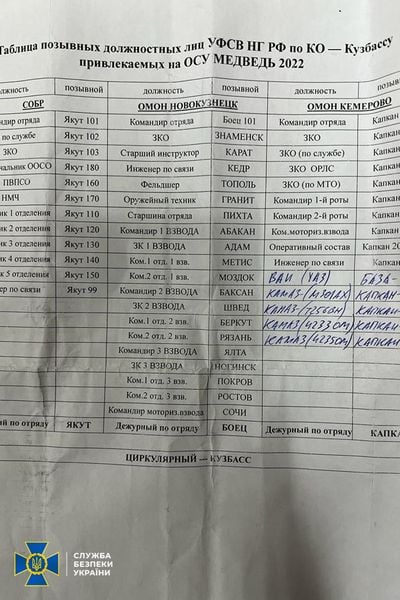 Таблица позывных должностных лиц УФСВ НГ РФ по КО — Кузбассу
привлекаемых на ОСУ МЕДВЕДЬ 2022
должность позывной должность позывной должность позывной
СОБР ОМОН НОВОКУЗНЕЦК ОМОН КЕМЕРОВО
отряда Якут 101 Командир отряда Боец 101 Командир отряда Капкан
по службе Якут 102 ЗКО ЗНАМЕНСК ЗКО Капкан
ЗКО Якут 103 Старший инструктор КАРАТ ЗКО (по службе) Капкан
ООСО Якут 180 Инженер по связи КЕДР ЗКО ОРЛС Капкан
ПВПСО Якут 160 Фельдшер ТОПОЛЬ ЗКО (по МТО) Капкан
НМЧ Якут 170 Оружейный техник ГРАНИТ Командир 1-й роты Капкан
1 отделения Якут 110 Старшина отряда ПИХТА Командир 2-й роты Капкан
2 отделения Якут 120 Командир 1 ВЗВОДА АБАКАН Ком.моториз.взвода Капкан
3 отделения Якут 130 ЗК 1 ВЗВОДА АДАМ Оперативный состав Капкан
4 отделения Якут 140 Ком.1 отд. 1 взв. МЕТИС Инженер по связи Капкан
5 отделения Якут 150 Ком.2 отд. 1 взв. МОЗДОК ВАИ (УАЗ) БАЗА-
по связи Якут 99 Командир 2 ВЗВОДА БАКСАН КАМАЗ КАПКАН-
ЗК 2 ВЗВОДА ШВЕД КАМАЗ КАПКАН-
Ком.1 отд. 2 взв. БЕРКУТ КАМАЗ КАПКАН-
Ком.2 отд. 2 взв. РЯЗАНЬ КАМАЗ КАПКАН-
Командир 3 ВЗВОДА ЯЛТА
ЗК 3 ВЗВОДА НОГИНСК
Ком.1 отд. 3 взв. ПОКРОВ
Ком.2 отд. 3 взв. РОСТОВ
Командир моториз.взвода СОЧИ
Дежурный по отряду ЯКУТ Дежурный по отряду БОЕЦ Дежурный по отряду КАПКА
ЦИРКУЛЯРНЫЙ — КУЗБАСС
СЛУЖБА
БЕЗПЕКИ
УКРАЇНИ